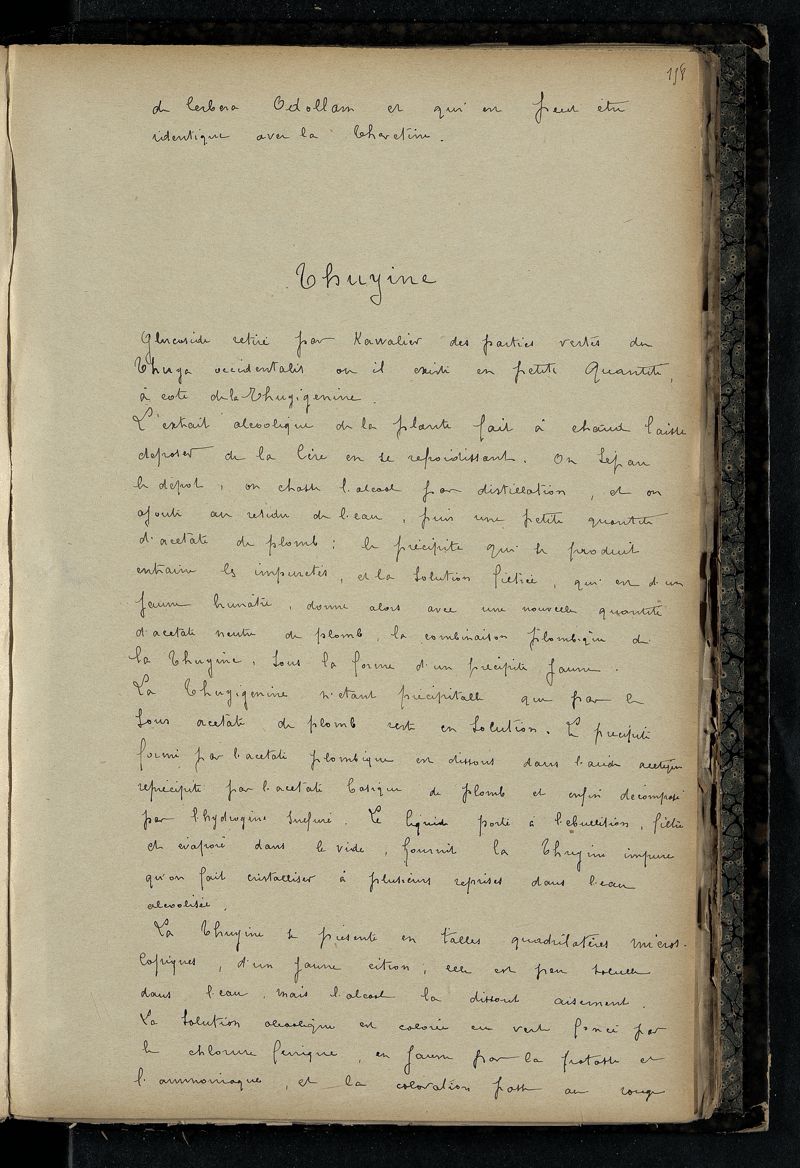 118
du Cerbera Odollam et qui est peut etre
identique avec la Thevetine.
Thuyine
Glucoside retiré par Kawalier des parties vertes du
Thuya occidentalis ou il existe en petite Quantité,
à coté de la Thuyigenine.
L'extrait alcoolique de la plante fait à chaud laisse
deposer de la Cire en se refroidissant. On Separe
le depot, on chasse l'alcool par distillation, et on
ajoute au residu de l'eau, puis une petite quantité
d'acetate de plomb; le précipité qui se produit
entraine les impuretés, et la Solution filtrée, qui est d'un
jaune, donne alors avec une nouvelle quantité
d'acetate neutre de plomb, la combinaison plombique de
la Thuyine, Sous la forme d'un precipité Jaune.
La Thuyigenine n'etant précipitable que par le
Sous acetate de plomb reste en Solution. Le precipité
formé par l'acetate plombique est dissous dans l'acide acetique
reprécipité par l'acetate basique de plomb et enfin decomposé
par l'hydrogène Sulfuré. Le liquide porté à l'ebullition, filtré
et evaporé dans le vide, fournit la Thuyine impure
qu'on fait cristalliser à plusieurs reprises dans l'eau
alcoolisée.
La Thuyine se présente en tables quadrilatères micros-
copiques, d'un jaune citron, elle est peu soluble
dans l'eau, mais l'alcool la dissout aisement.
La Solution alcoolique est colorée en vert foncé par
le chlorure ferrique, en jaune par la potasse et
l'ammoniaque, et la coloration passe au rouge